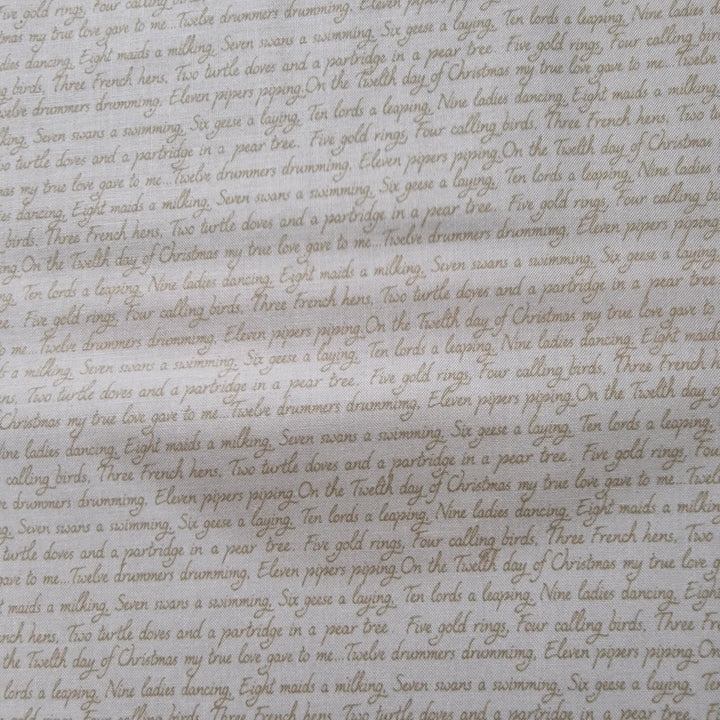 ive gold rings, Four calling bi
tmas my true love gave to me...Twelve drummers drumming, Eleven pipers pipin
dies dancing, Eight maids a milking, Seven swans a swimming, Six geese a laying, Ten lords a leaping, Nine ladies d
g birds, Three French hens, Two turtle doves and a partridge in a pear tree. Five gold rings, Four calling bird
welve drummers drumming, Eleven pipers piping.On the Twelth day of Christmas my true love gave to me...Twelve
lking, Seven swans a swimming, Six geese a laying, Ten lords a leaping, Nine ladies dancing, Eight maids a milking,
o turtle doves and a partridge in a pear tree. Five gold rings, Four calling birds, Three French hens, Two t
as my true love gave to me...Twelve drummers drumming, Eleven pipers piping.On the Twelth day of Christmas
ies dancing, Eight maids a milking, Seven swans a swimming, Six geese a laying, Ten lords a leaping, Nine ladies
birds, Three French hens, Two turtle doves and a partridge in a pear tree. Five gold rings, Four calling b
ng.On the Twelth day of Christmas my true love gave to me...Twelve drummers drumming, Eleven pipers piping
ng, Ten lords a leaping, Nine ladies dancing, Eight maids a milking, Seven swans a swimming, Six geese a laying,
e. Five gold rings, Four calling birds, Three French hens, Two turtle doves and a partridge in a pear tree
o me...Twelve drummers drumming, Eleven pipers piping.On the Twelth day of Christmas my true love gave to
s a milking, Seven swans a swimming, Six geese a laying, Ten lords a leaping, Nine ladies dancing, Eight maids
ns, Two turtle doves and a partridge in a pear tree. Five gold rings, Four calling birds, Three French h
Christmas my true love gave to me...Twelve drummers drumming, Eleven pipers piping.On the Twelth day o
Nine ladies dancing, Eight maids a milking, Seven swans a swimming, Six geese a laying, Ten lords a leaping,
calling birds, Three French hens, Two turtle doves and a partridge in a pear tree. Five gold rings, Fou
e drummers drumming, Eleven pipers piping.On the Twelth day of Christmas my true love gave to me...Twel
g, Seven swans a swimming, Six geese a laying, Ten lords a leaping, Nine ladies dancing, Eight maids a milkin
turtle doves and a partridge in a pear tree. Five gold rings, Four calling birds, Three French hens, Two
gave to me...Twelve drummers drumming, Eleven pipers piping.On the Twelth day of Christmas my true love g
t maids a milking, Seven swans a swimming, Six geese a laying, Ten lords a leaping, Nine ladies dancing, Eigh
nch hens, Two turtle doves and a partridge in a pear tree. Five gold rings, Four calling birds, Three Fre
the Twelth day of Christmas my true love gave to me...Twelve drummers drumming, Eleven pipers piping.On
lords a leaping, Nine ladies dancing, Eight maids a milking, Seven swans a swimming, Six geese a laying, Te
gold rings, Four calling birds, Three French hens, Two turtle doves and a partridge in a pear tree. F